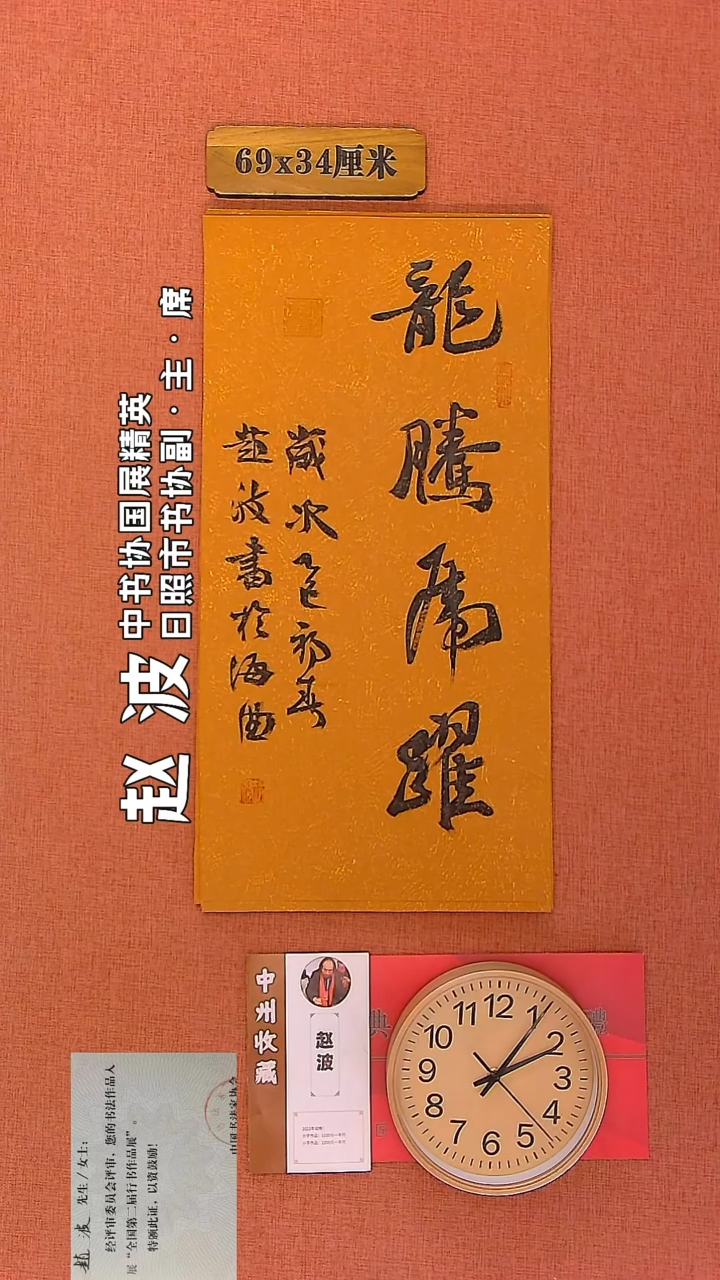 69x34厘米
龍騰虎躍
歲次乙巳初春
趙波書於海曲
赵波
中书协国展精英
日照市书协副·主·席
赵波
12
1
2
3
4
5
6
7
8
9
10
11
趙波 先生/女士:
经评审委员会评审，您的书法作品入
展“全国第二届行书作品展”。
特颁此证，以资鼓励!